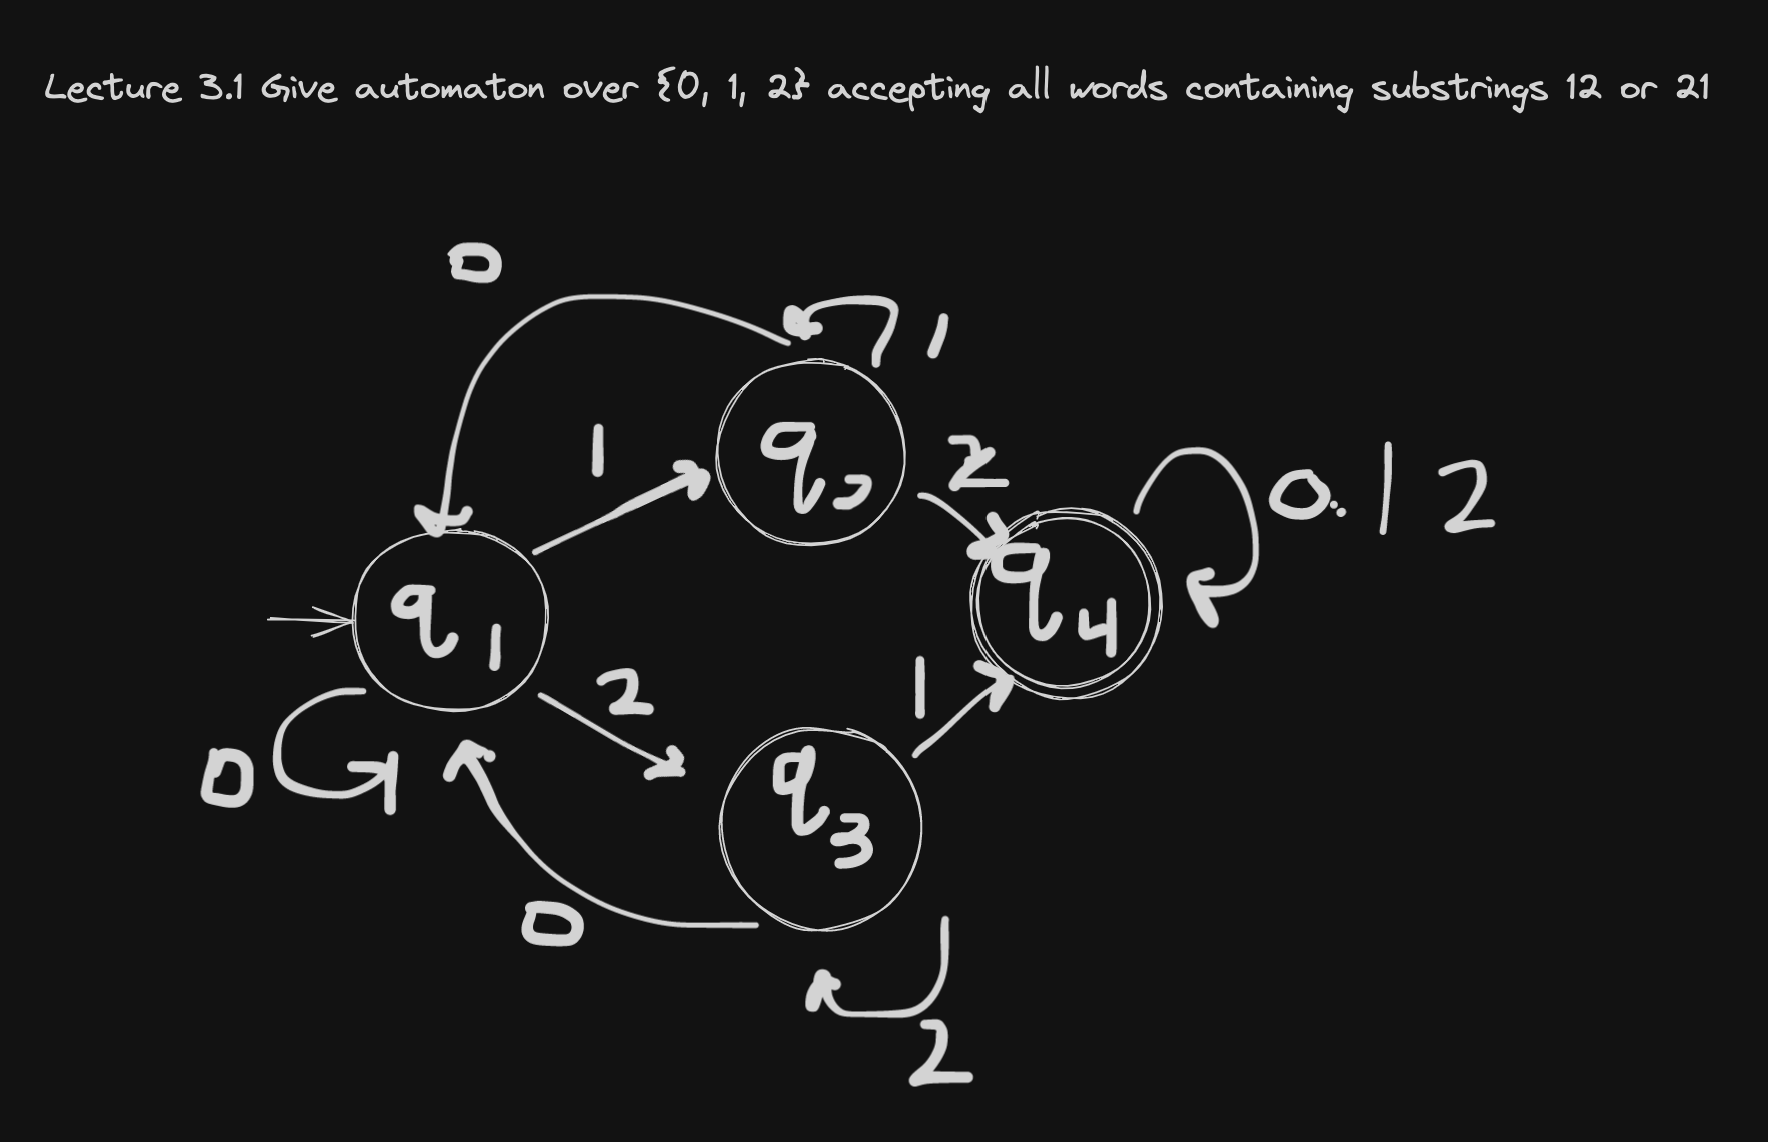 Lecture 3.1 Give automaton over {0, 1, 2} accepting all words containing substrings 12 or 21
0
1
1
q2
2
0.12
q4
q1
2
1
0
q3
0
2